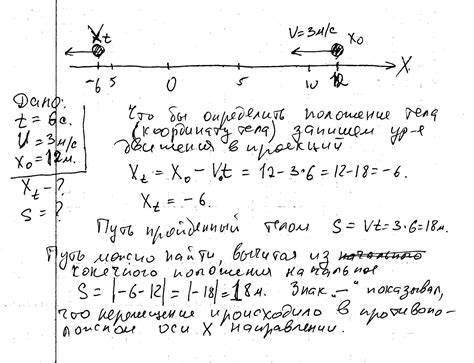 X_t V=3м/с x₀
-6 5 0 5 10 12 X
Дано:
t = 6с.
U = 3м/с
x₀ = 12м.
X_t - ?
S = ?
Что бы определить положение тела
(координату тела) запишем ур-е
движения в проекций
X_t = X₀ - V₀t = 12 - 3·6 = 12 - 18 = -6.
X_t = -6.
Путь пройденный телом S = Vt = 3·6 = 18м.
Путь можно найти, вычитая из начального
конечного положения начальное
S = |-6-12| = |-18| = 18м. Знак "–" показывал,
что перемещение происходило в противопо-
ложном оси X направлении.